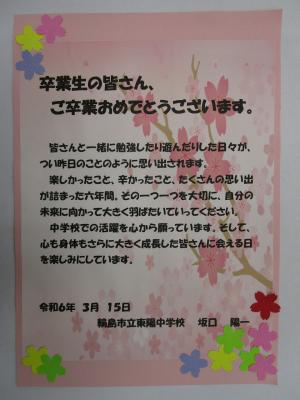 卒業生の皆さん、
ご卒業おめでとうございます。
皆さんと一緒に勉強したり遊んだりした日々が、
つい昨日のことのように思い出されます。
楽しかったこと、辛かったこと、たくさんの思い出
が詰まった六年間。その一つ一つを大切に、自分の
未来に向かって大きく羽ばたいていってください。
中学校での活躍を心から願っています。そして、
心も身体もさらに大きく成長した皆さんに会える日
を楽しみにしています。
令和6年 3月 15日
輪島市立東陽中学校 坂口 陽一